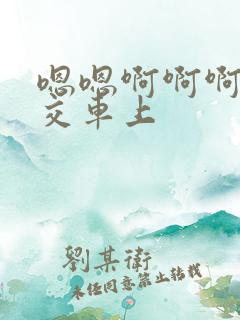 嗯嗯啊啊啊
交车上
劉某衛
未经同意禁止转载